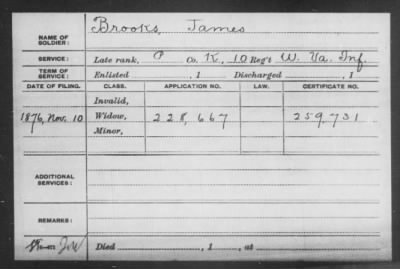 NAME OF SOLDIER: Brooks, James
SERVICE: Late rank, P Co. K, 10 Reg't W. Va. Inf.
TERM OF SERVICE: Enlisted , 1 Discharged , 1
DATE OF FILING. CLASS. APPLICATION NO. LAW. CERTIFICATE NO.
Invalid,
1876, Nov. 10 Widow, 228,667 259,731
Minor,
ADDITIONAL SERVICES:
REMARKS:
Died , 1 , at